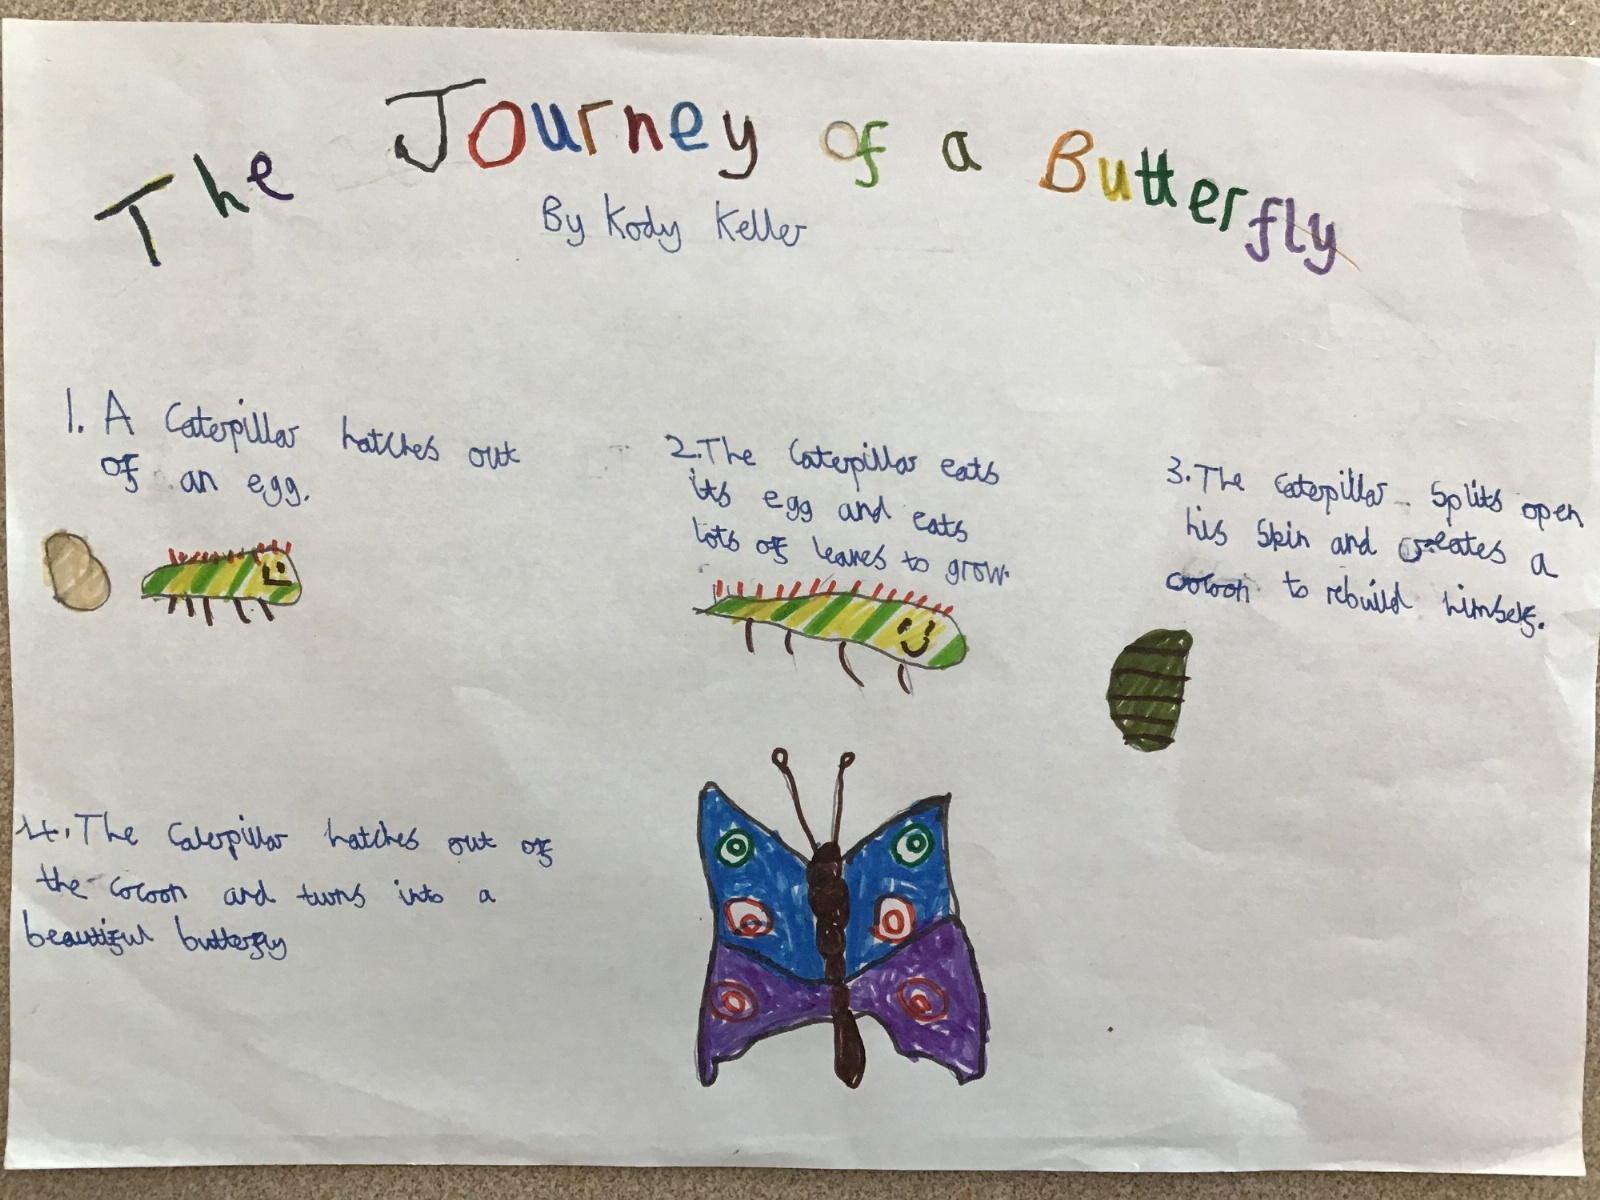 The Journey of a Butterfly
By Kody Keller
1. A Caterpillar hatches out
of an egg.
2. The Caterpillar eats
its egg and eats
lots of leaves to grow.
3. The Caterpillar Splits open
his Skin and creates a
cocoon to rebuild himself.
4. The Caterpillar hatches out of
the cocoon and turns into a
beautiful butterfly